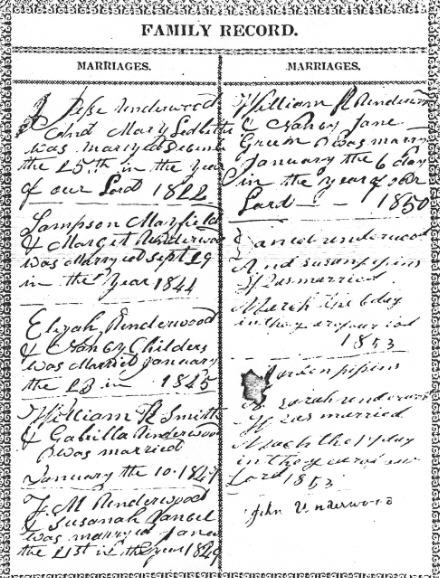 FAMILY RECORD.
MARRIAGES.
Jesse Underwood
And Mary Ledbette
was marryed Decembe
the 25th in the year
of our Lord 1822
Sampson Mayfield
& Margit Underwood
was Marryed Sept 29
in the Year 1844
Elijah Underwood
& Nancy Childers
was Married January
the 23 in 1845
William R Smith
& Gabrilla Underwood
was married
January the 10. 1847
F. M Underwood
& Susanah
was marryed January
the 21st in the year 184
MARRIAGES.
William R Underw
& Nancy Jane
Green was marry
January the 6 day
in the year of our
Lord - - 1850
underwood
And susan pipins
was married
March the 6 day
in the year our lord
1853
pipins
& sarah underw
was married
March the 17 day
in the year of our
Lord 1853
John Underwood